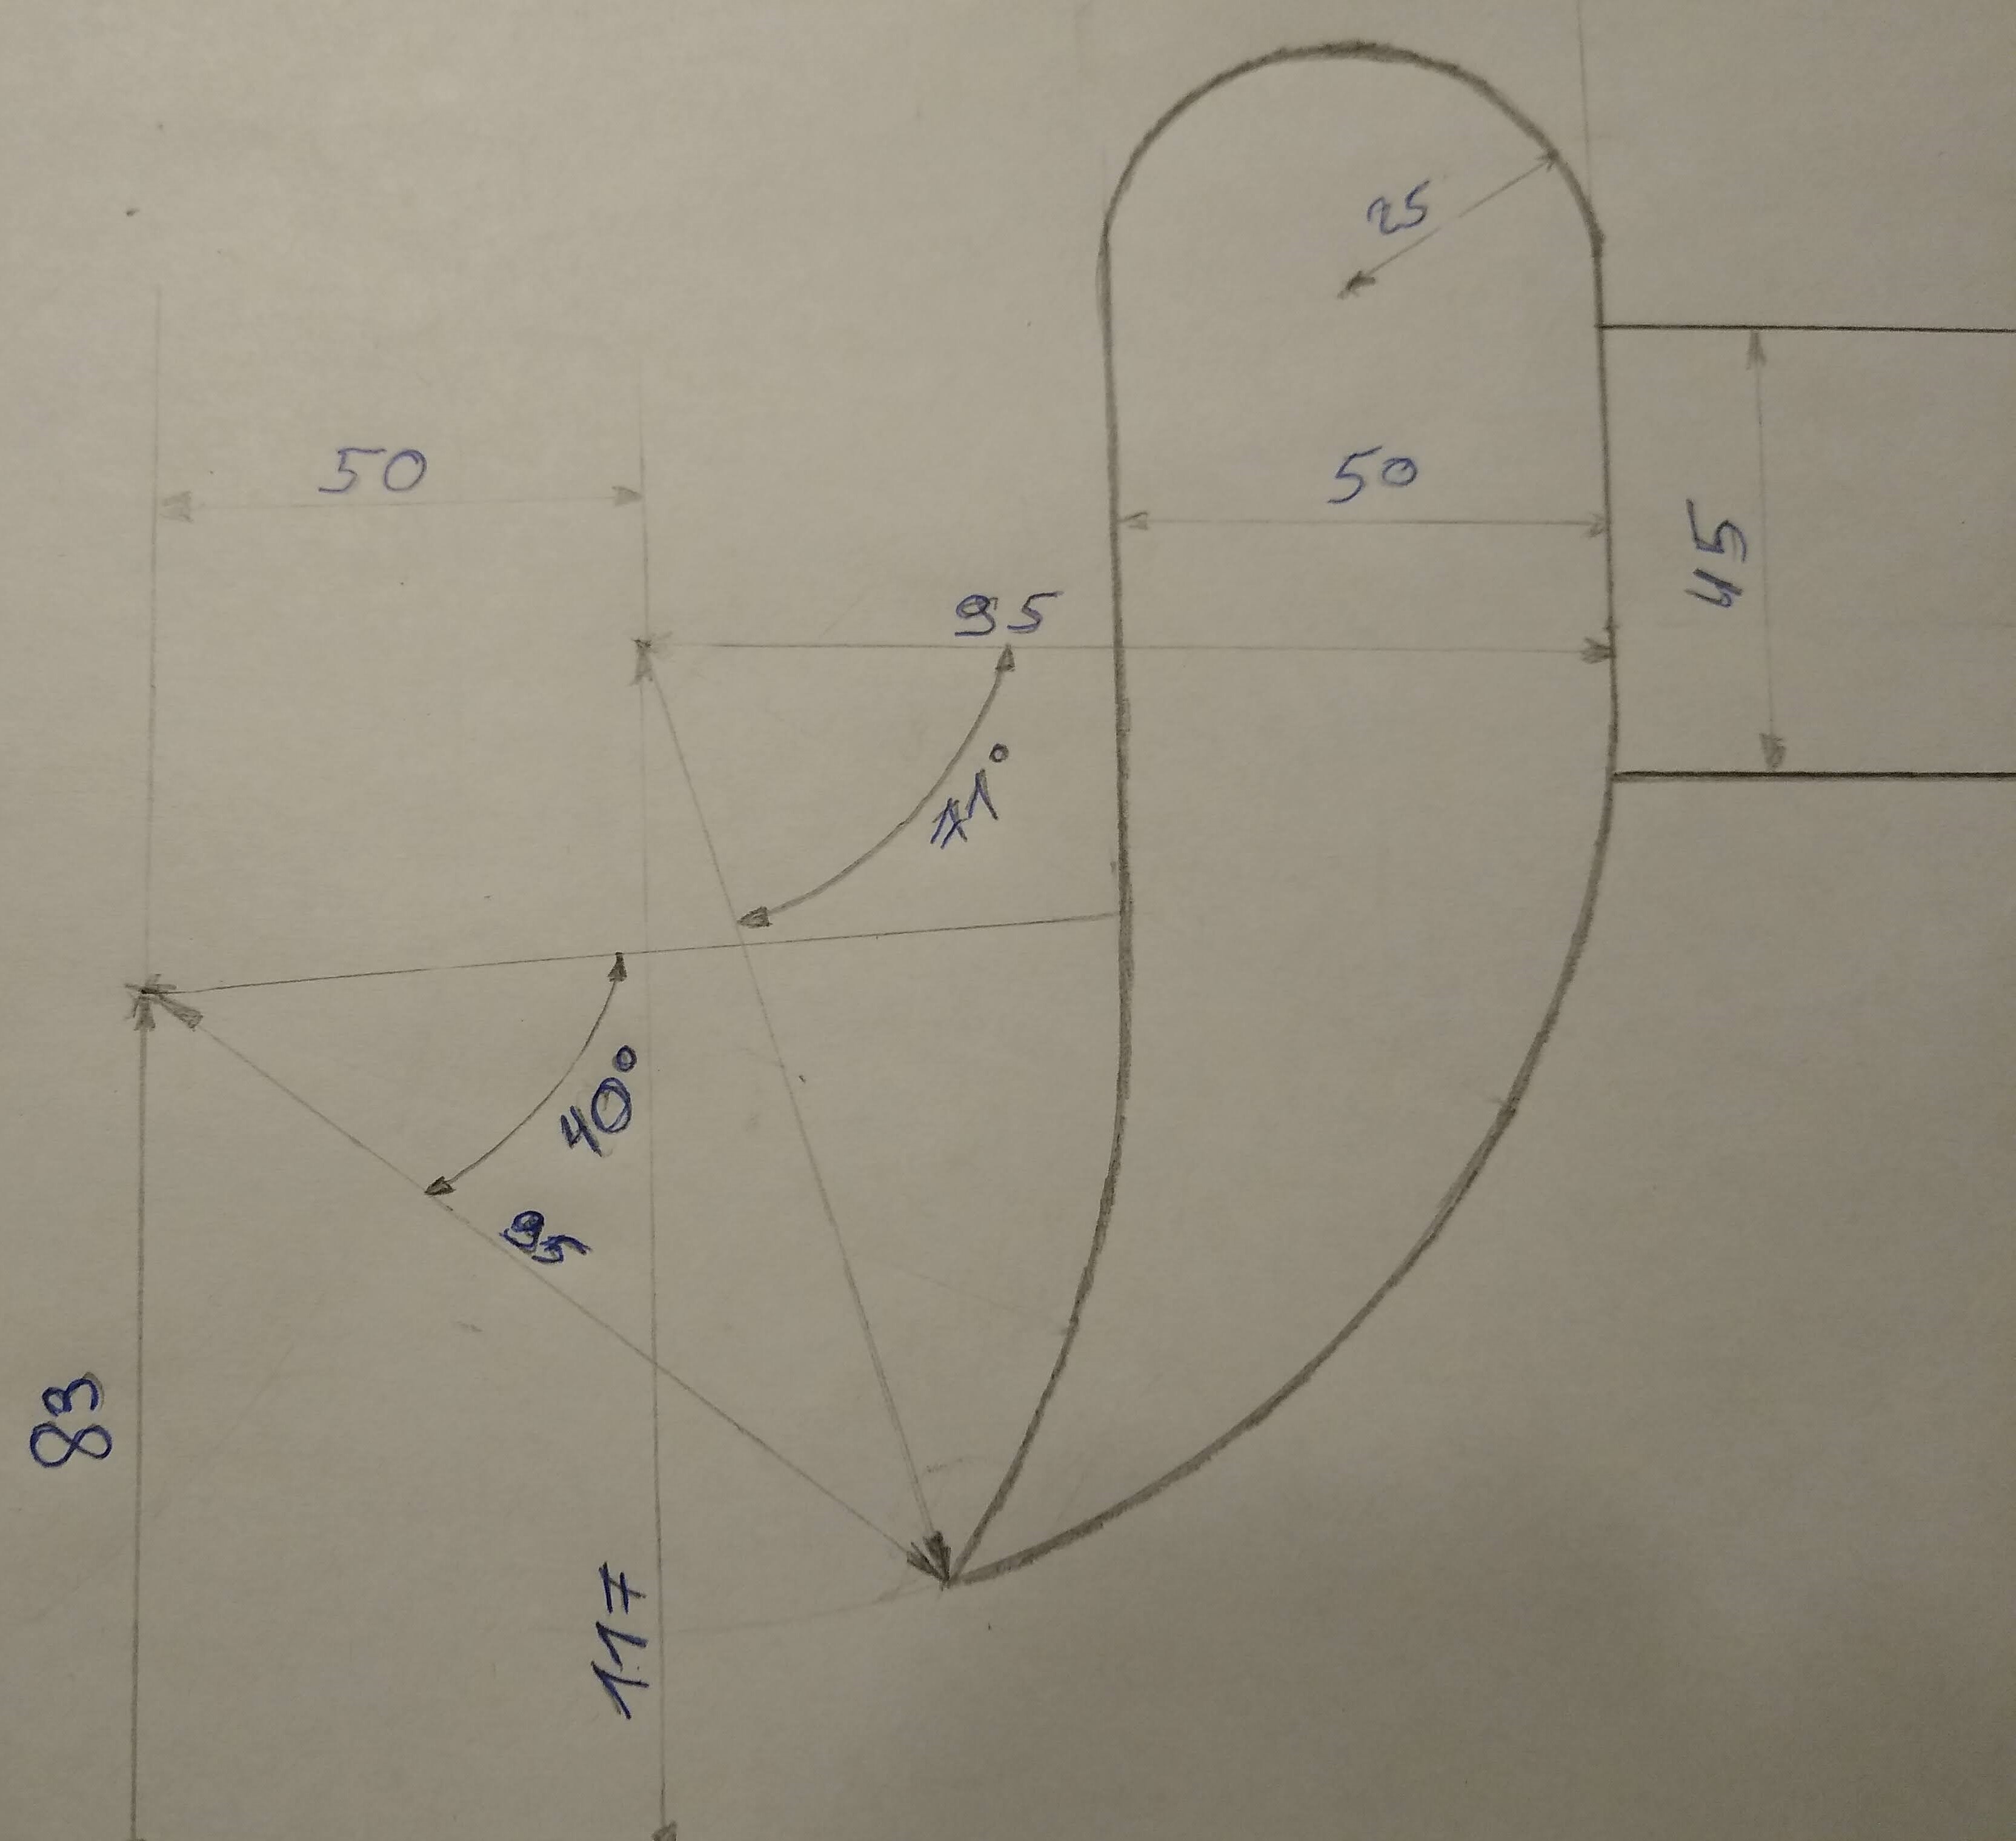 25
50
50
45
95
71°
40°
95
83
117